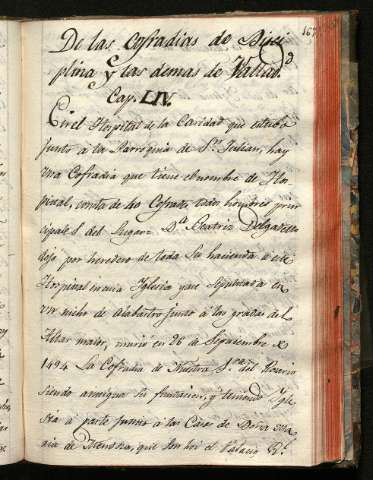 167
De las Cofradias de Disci
plina y las demas de Vallid.
Cap. LIV.
En el Hospital de la Caridad que estaba
junto a la Parroquia de Sn. Julian, hay
una Cofradia que tiene el nombre de Hos
pital, consta de Cofrades, hombres prin
cipales del Lugar: Da. Beatriz Delgadillo
dejo por heredero de toda su hacienda a este
Hospital en cuia Iglesia yace sepultada en
un nicho de Alabastro junto a las gradas del
Altar maior, murio en 26 de Septiembre
1494 La Cofradia de Nuestra Sra. del Rosario
siendo antigua su fundacion, y teniendo Igle
sia a parte junto a las Casas de Doña Ma
ria de Mendoza, que son hoi el Palacio Rl.